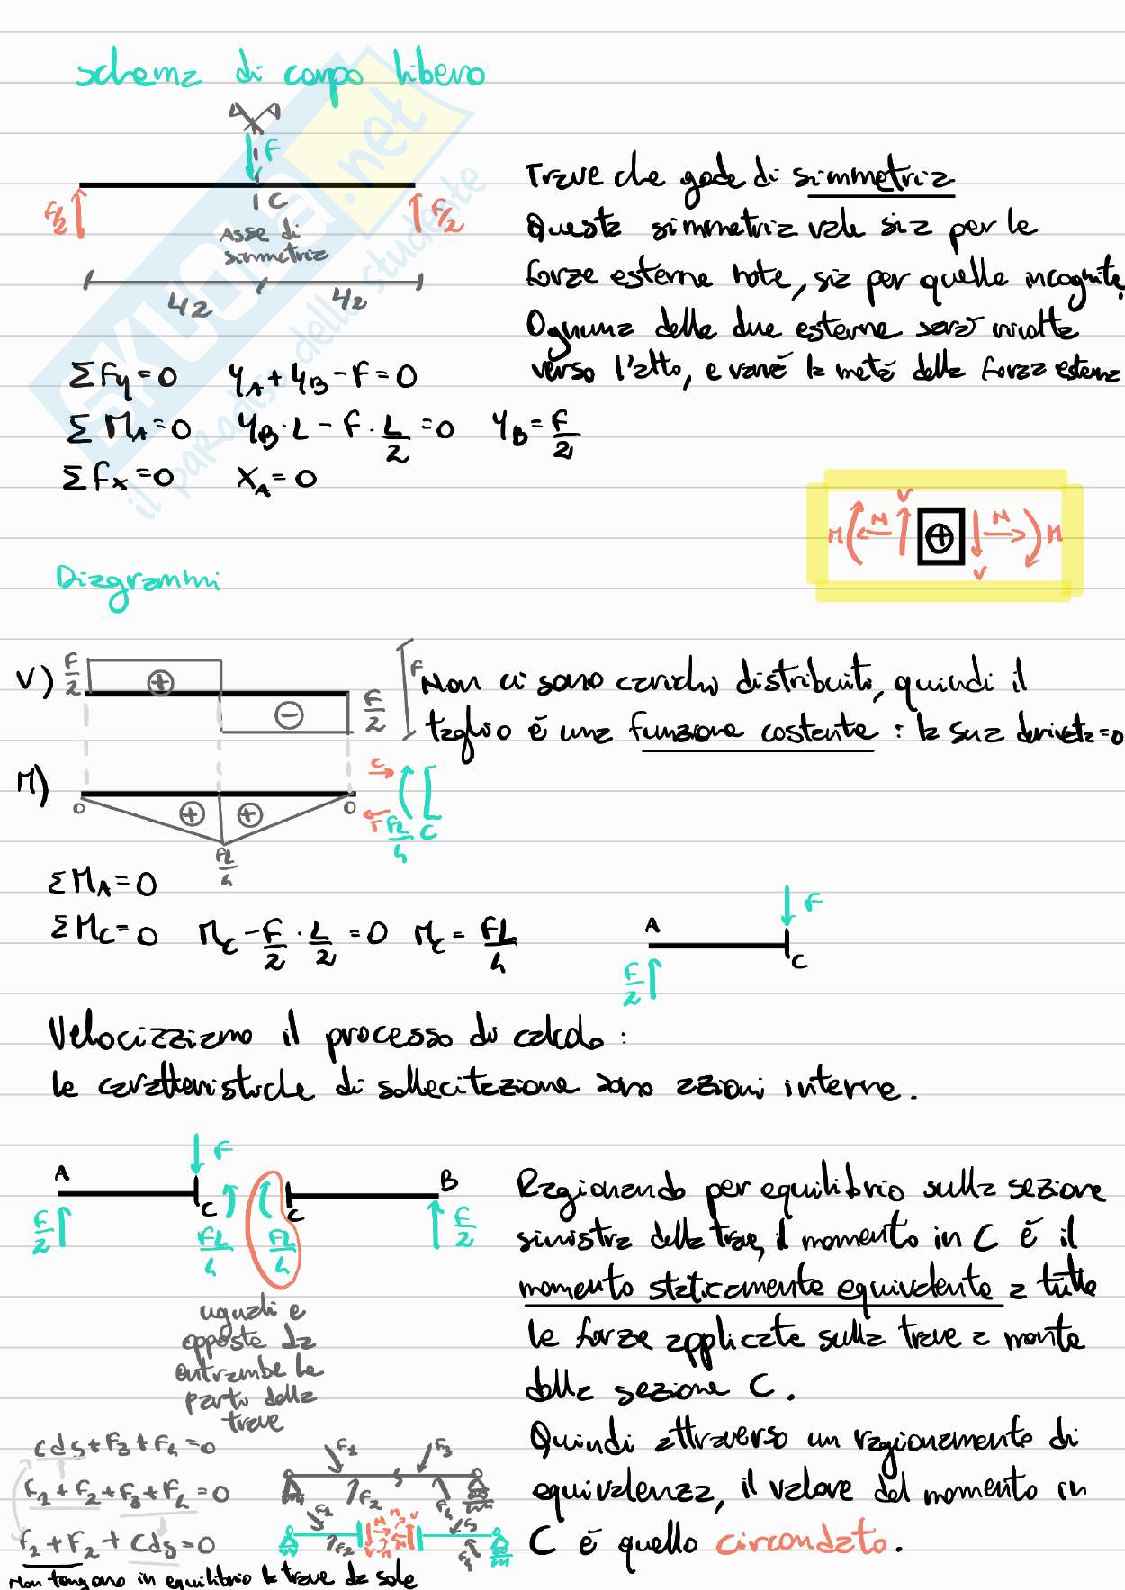 schema di corpo libero
F
C
F/2
F/2
Asse di
simmetria
L/2
L/2
Trave che gode di simmetria
Questa simmetria vale sia per le
forze esterne note, sia per quelle incognite.
Ognuna delle due esterne sarà rivolta
verso l'alto, e varrà la metà della forza esterna
ΣFy = 0 YA + YB - F = 0
ΣMA = 0 YB · L - F · L/2 = 0 YB = F/2
ΣFx = 0 XA = 0
M N V + V N M
Diagrammi
V) F/2 + - F/2 F
Non ci sono carichi distribuiti, quindi il
taglio è una funzione costante : la sua derivata = 0
M) 0 + + 0
FL/4
C
T FL/4 C
ΣMA = 0
ΣMC = 0 MC - F/2 · L/2 = 0 MC = FL/4
A F
F/2 C
Velocizziamo il processo di calcolo :
le caratteristiche di sollecitazione sono azioni interne.
A F C C B
F/2 FL/4 FL/4 F/2
uguali e
opposte da
entrambe le
parti della
trave
Ragionando per equilibrio sulla sezione
sinistra della trave, il momento in C è il
momento staticamente equivalente a tutte
le forze applicate sulla trave a monte
della sezione C.
Quindi attraverso un ragionamento di
equivalenza, il valore del momento in
C è quello circondato.
Cds + F3 + F4 = 0
F1 + F2 + F3 + F4 = 0
F1 + F2 + Cds = 0
Non tengono in equilibrio la trave da sole
SKUOLA.net
il paradiso dello studente